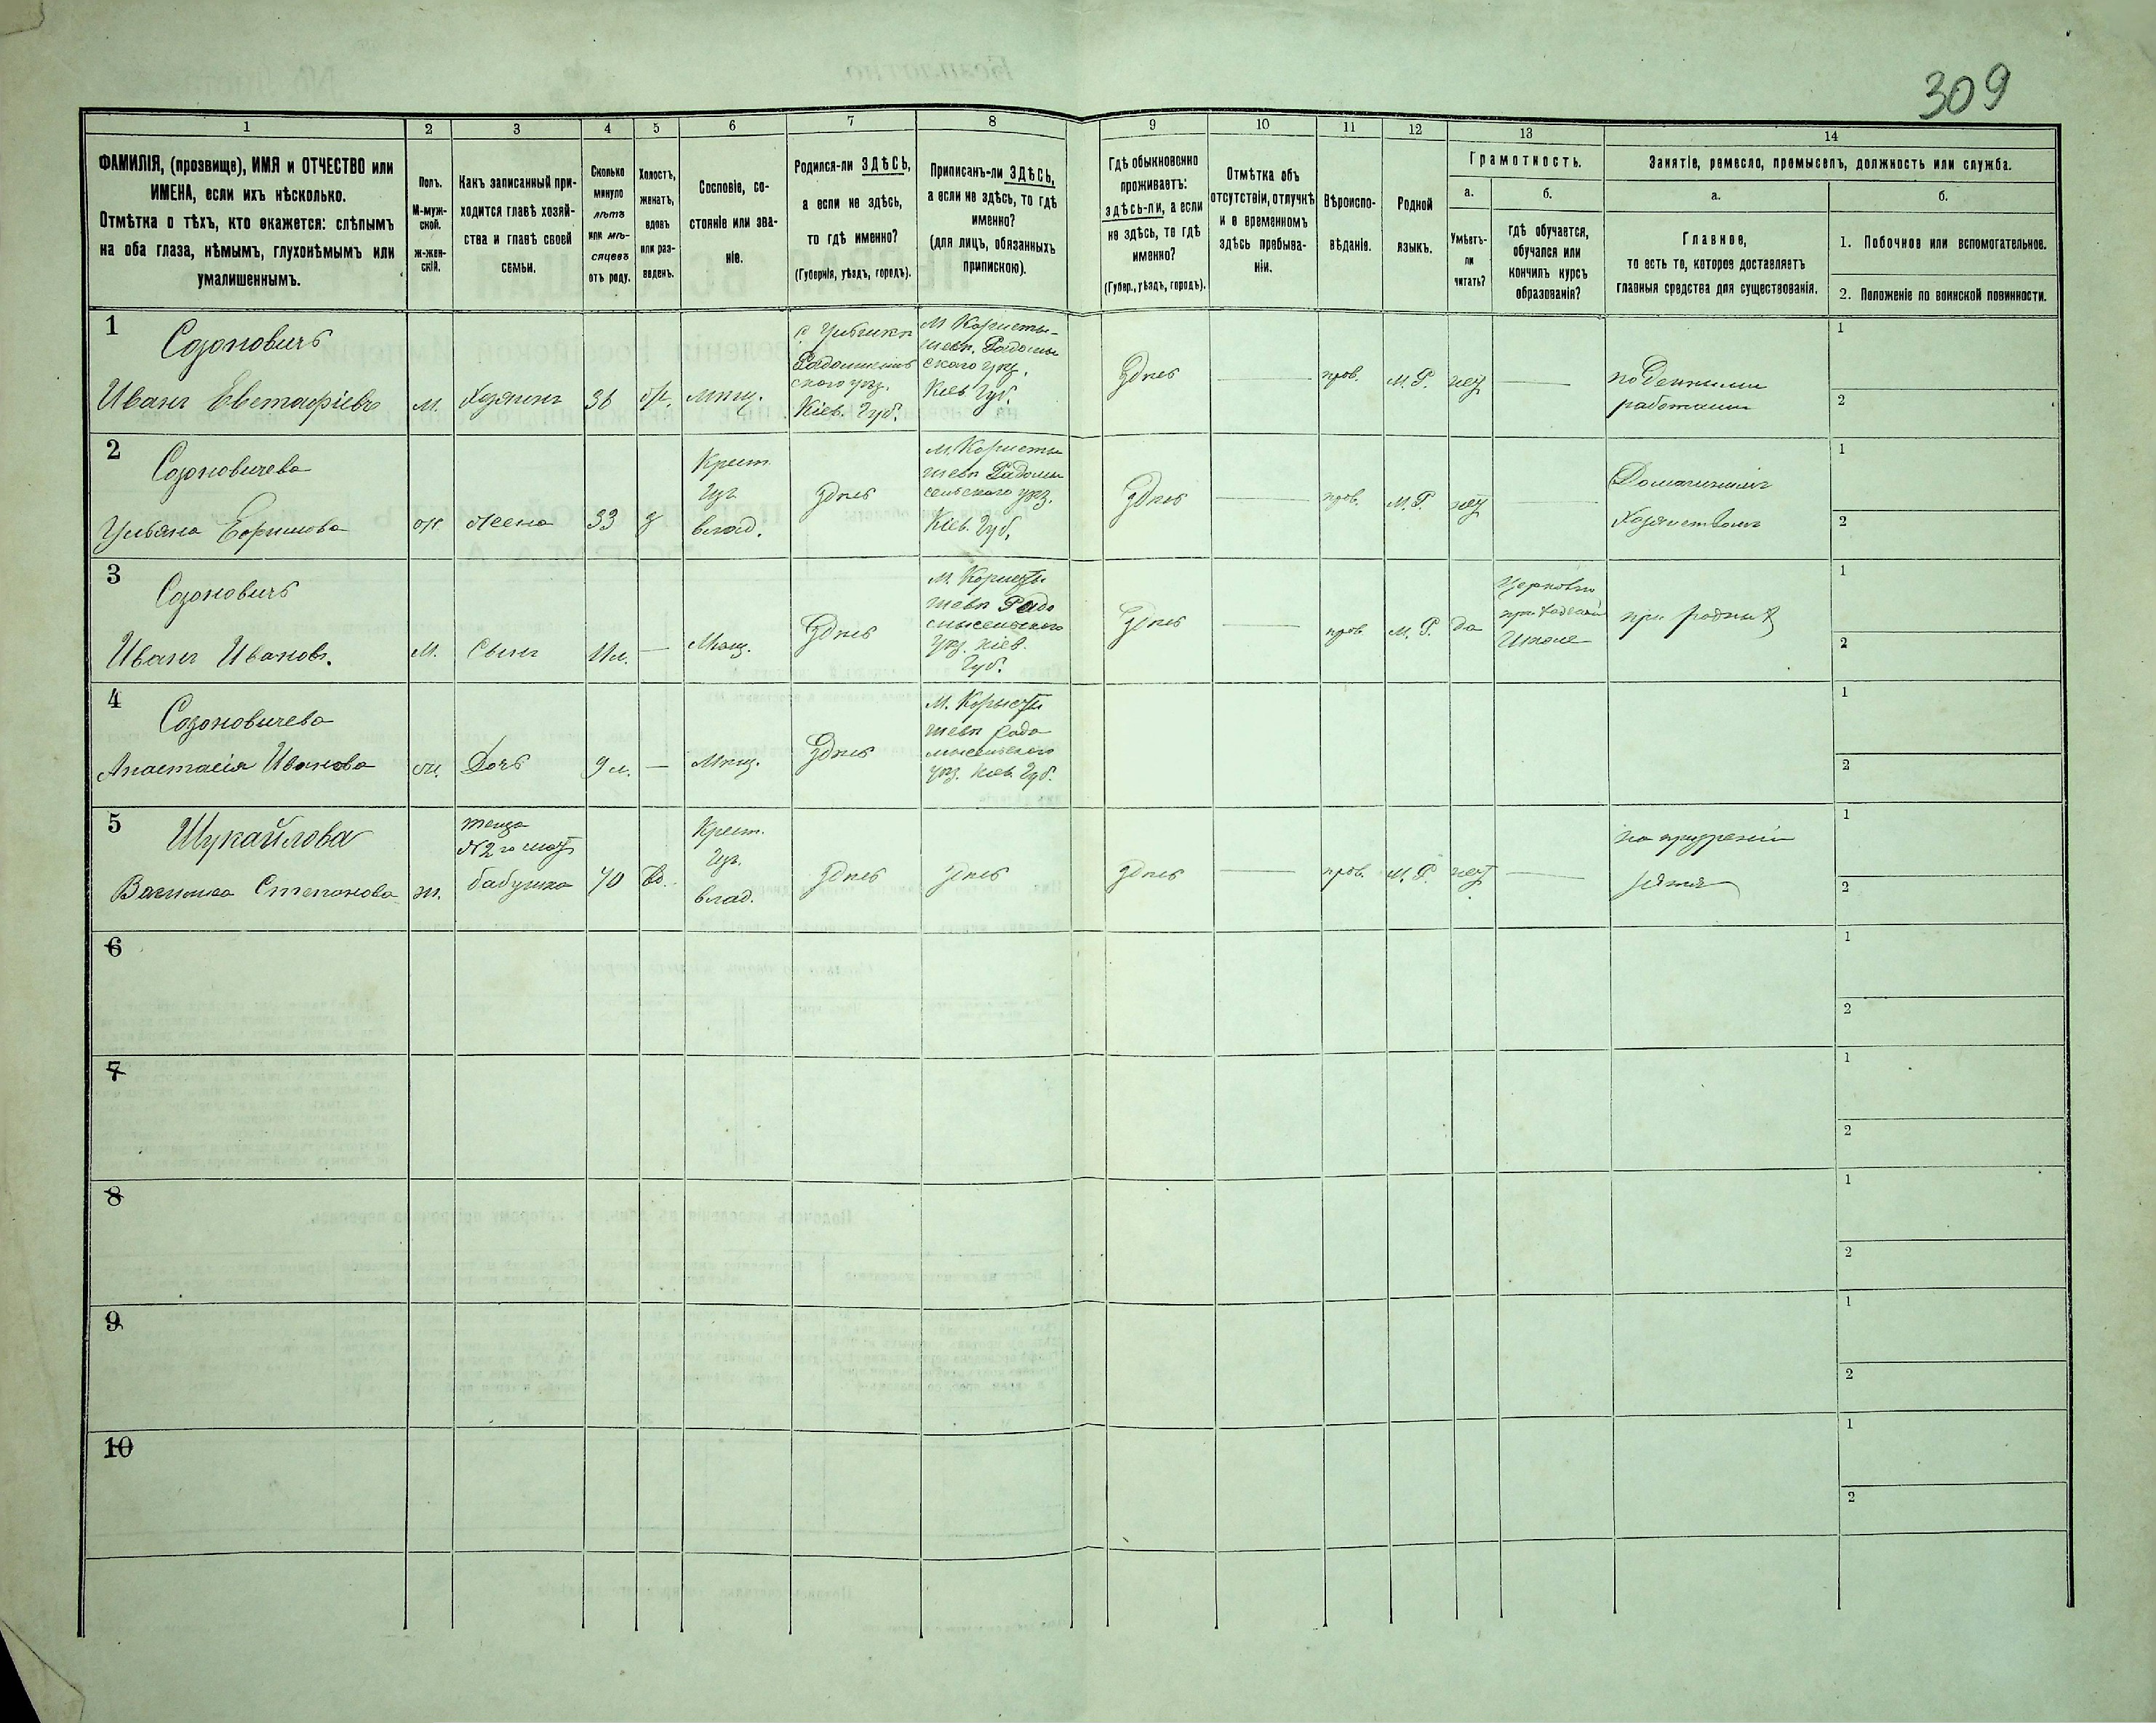 309
1 2 3 4 5 6 7 8 9 10 11 12 13 14
ФАМИЛІЯ, (прозвище), ИМЯ и ОТЧЕСТВО или
ИМЕНА, если ихъ нѣсколько.
Отмѣтка о тѣхъ, кто окажется: слѣпымъ
на оба глаза, нѣмымъ, глухонѣмымъ или
умалишеннымъ.
Полъ.
М-муж-
ской.
Ж-жен-
скій.
Какъ записанный при-
ходится главѣ хозяй-
ства и главѣ своей
семьи.
Сколько
минуло
лѣтъ
или мѣ-
сяцевъ
отъ роду.
Холостъ,
женатъ,
вдовъ
или раз-
веденъ.
Сословіе, со-
стояніе или зва-
ніе.
Родился-ли ЗДѢСЬ,
а если не здѣсь,
то гдѣ именно?
(Губернія, уѣздъ, городъ).
Приписанъ-ли ЗДѢСЬ,
а если не здѣсь, то гдѣ
именно?
(для лицъ, обязанныхъ
припискою).
Гдѣ обыкновенно
проживаетъ:
здѣсь-ли, а если
не здѣсь, то гдѣ
именно?
(Губер., уѣздъ, городъ).
Отмѣтка объ
отсутствіи, отлучкѣ
и о временномъ
здѣсь пребыва-
ніи.
Вѣроиспо-
вѣданіе.
Родной
языкъ.
Грамотность.
а.
Умѣетъ-
ли
читать?
б.
гдѣ обучается,
обучался или
кончилъ курсъ
образованія?
Занятіе, ремесло, промыселъ, должность или служба.
а.
Главное,
то есть то, которое доставляетъ
главныя средства для существованія.
б.
1. Побочное или вспомогательное.
2. Положеніе по воинской повинности.
1
Созоновичъ
Иванъ Евстафіевъ
м.
Хозяинъ
36
мѣщ.
Кіев. Губ.
М. Користы-
шевѣ, Радомы
ского уѣз.
Кіев. Губ.
Здѣсь
—
прав.
М. Р.
нет
—
поденными
работами
1
2
2
Созоновичева
Ульяна Ефримова
ж
жена
33
з
Крест.
изъ
влад.
здѣсь
М. Користы
шевѣ Радомы
сельского уѣз.
Кіев. Губ.
Здѣсь
—
прав.
М. Р.
нет
—
Домашнимъ
Хозяйствомъ
1
2
3
Созоновичъ
Иванъ Ивановъ.
М.
Сынъ
11 л.
—
Мѣщ.
Здѣсь
М. Користы
шевѣ Радо
мысельского
уѣз. Кіев.
Губ.
Здѣсь
—
прав
М. Р.
да
Церковно
приходской
Школе
при родных
1
2
4
Созоновичева
Анастасія Иванова
ж.
Дочь
9 л.
—
Мѣщ.
Здѣсь
М. Корысты
шевѣ Радо
мысельского
уѣз. Кіев. Губ.
1
2
5
Шукайлова
Степанова
ж.
теща
бабушка
70
Вд.
Крест.
изъ
влад.
Здѣсь
Здѣсь
Здѣсь
—
прав.
М. Р.
нет
—
на призреніи
зятя
1
2
6
1
2
7
1
2
8
1
2
9
1
2
10
1
2